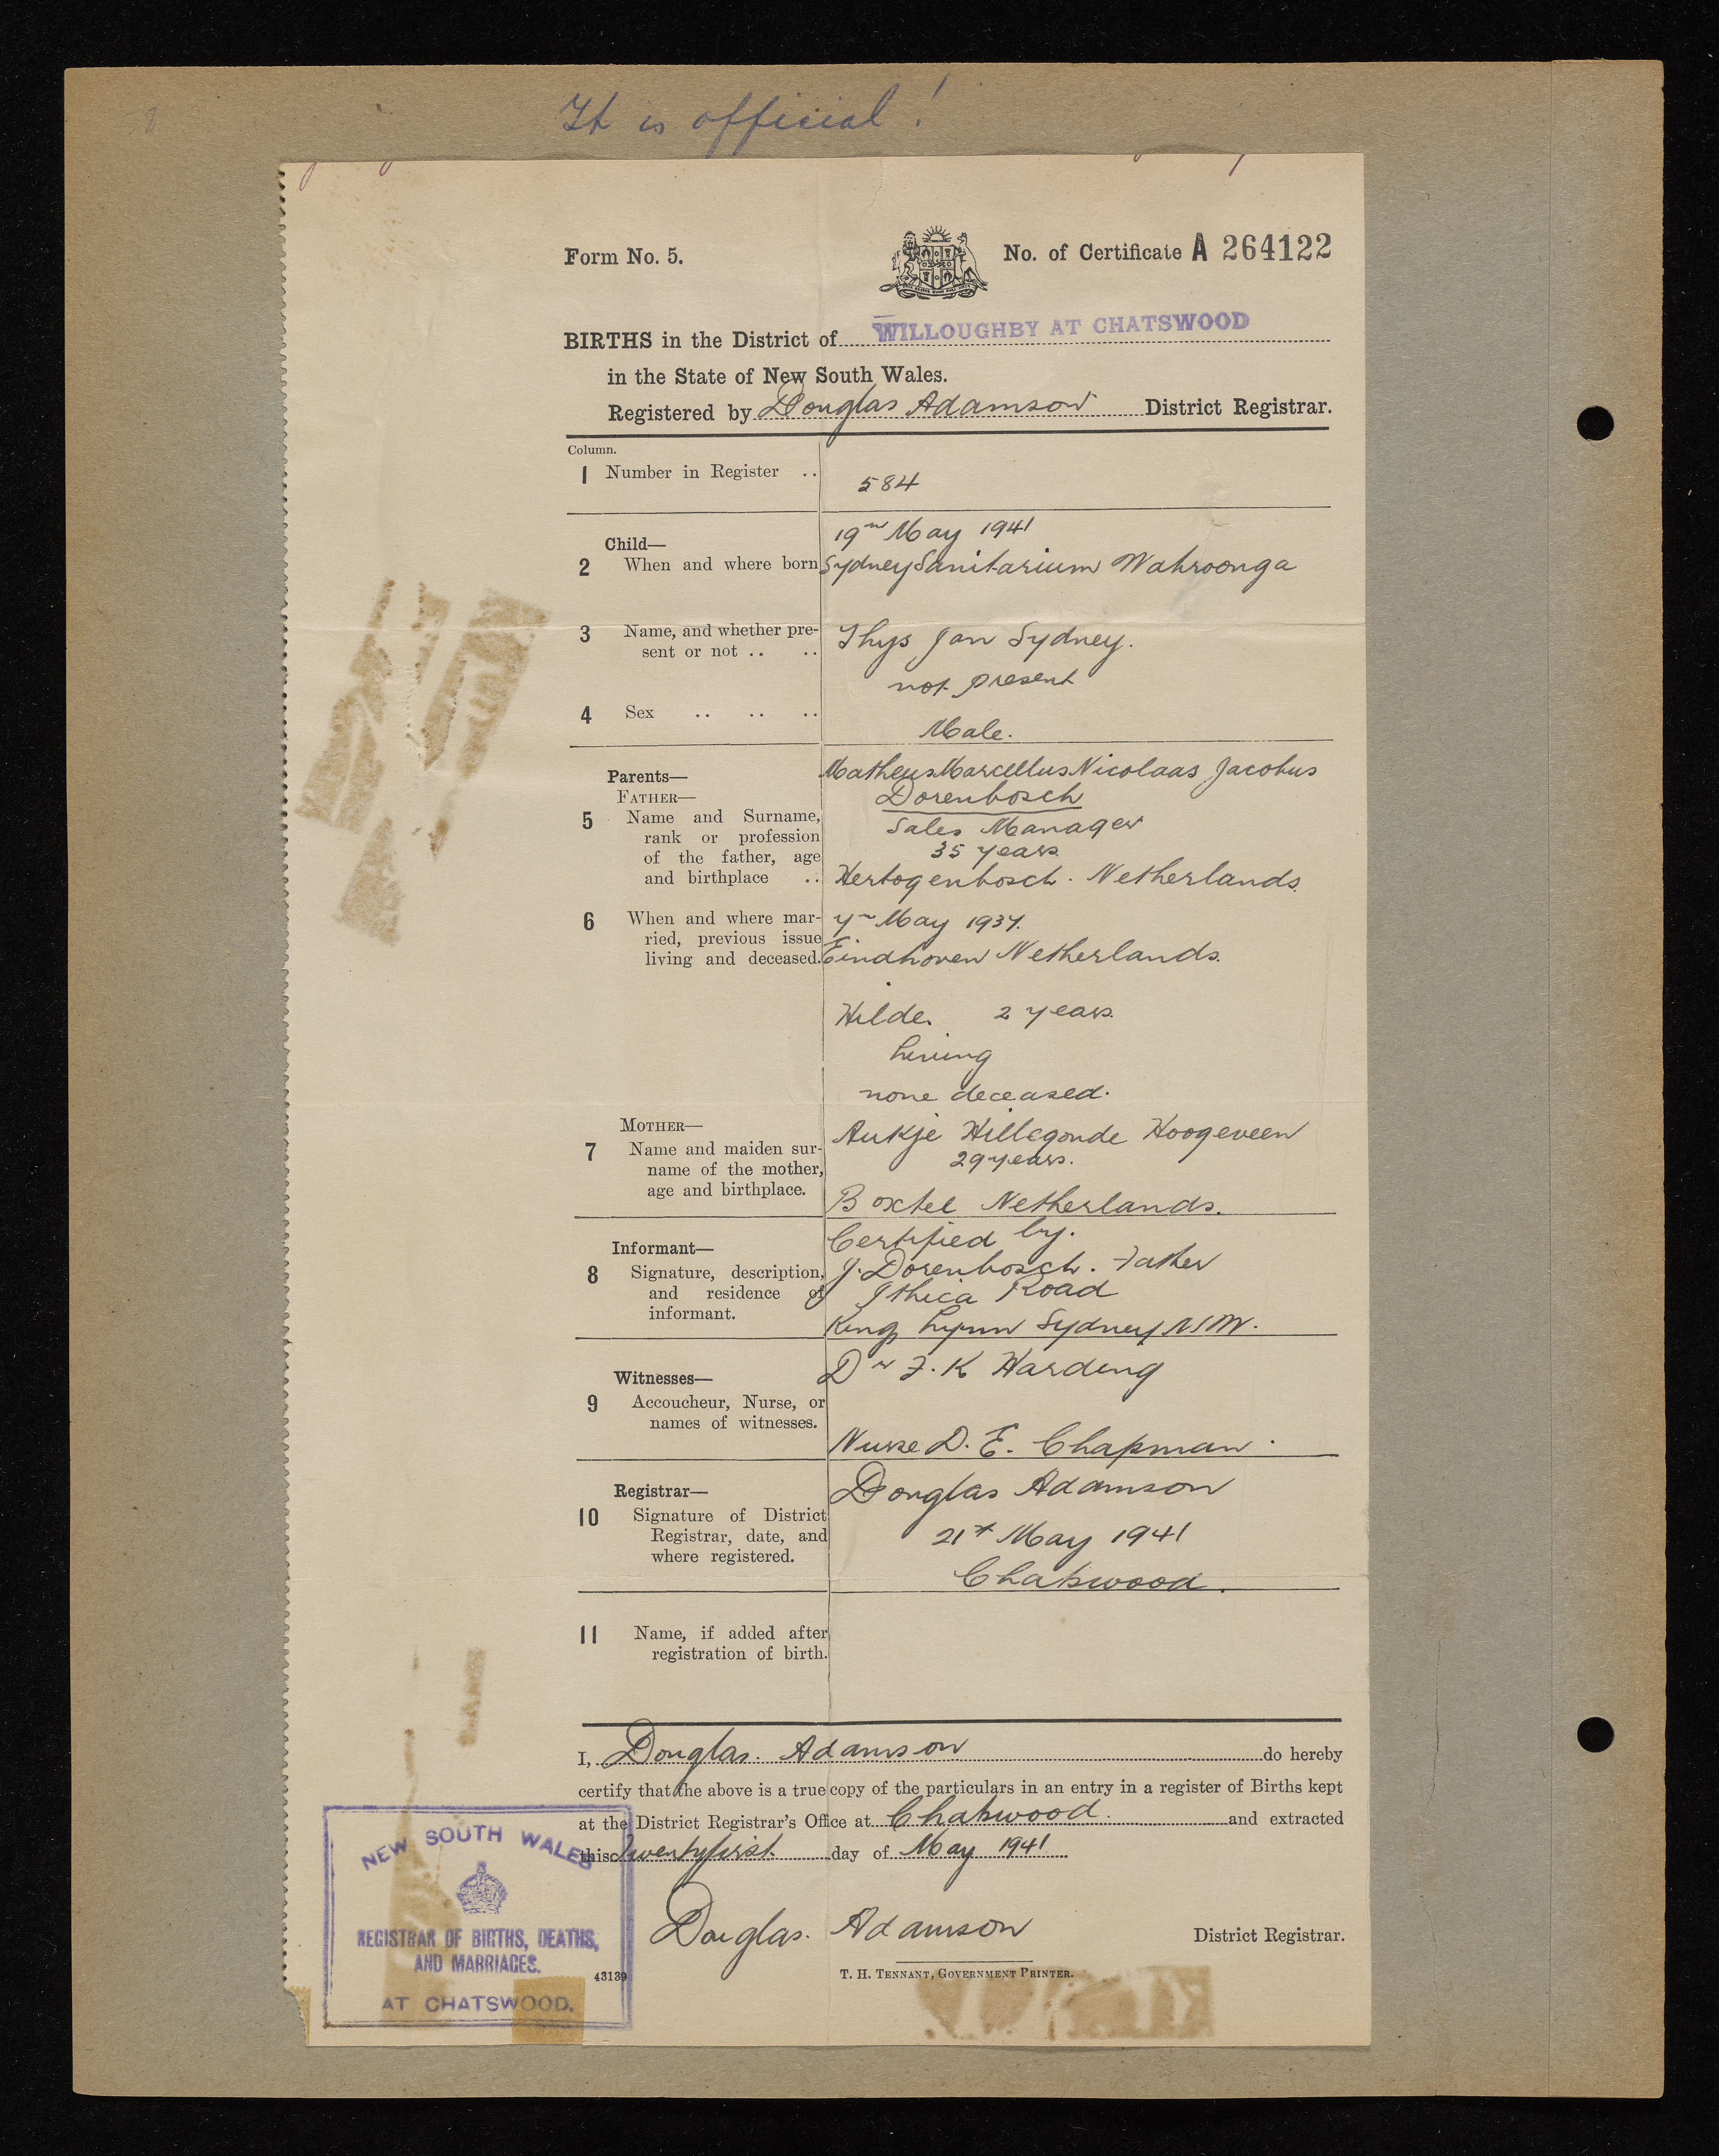 It is official!
Form No. 5.
No. of Certificate A 264122
BIRTHS in the District of WILLOUGHBY AT CHATSWOOD
in the State of New South Wales.
Registered by Douglas Adamson District Registrar.
Column.
1 Number in Register .. 584
19th May 1941
Child—
2 When and where born Sydney Sanitarium Wahroonga
3 Name, and whether pre- Thys Jan Sydney.
sent or not .. ..
not present
4 Sex .. .. ..
Male.
Parents— Matheus Marcellus Nicolaas Jacobus
FATHER— Dorenbosch
5 Name and Surname, Sales Manager
rank or profession
of the father, age 35 years
and birthplace .. Hertogenbosch. Netherlands.
6 When and where mar- 7th May 1937.
ried, previous issue
living and deceased. Eindhoven Netherlands.
Hilde. 2 years.
living
none deceased.
MOTHER— Aukje Hillegonde Hoogeveen
7 Name and maiden sur-
name of the mother, 29 years.
age and birthplace.
Boxtel Netherlands.
Certified by.
Informant—
8 Signature, description, J. Dorenbosch. Father
and residence of Ithica Road
informant.
Kings Lynn Sydney NSW.
Witnesses— Dr F. K Harding
9 Accoucheur, Nurse, or
names of witnesses.
Nurse D. E. Chapman.
Registrar— Douglas Adamson
10 Signature of District
Registrar, date, and 21st May 1941
where registered.
Chatswood.
11 Name, if added after
registration of birth.
I, Douglas Adamson do hereby
certify that the above is a true copy of the particulars in an entry in a register of Births kept
at the District Registrar's Office at Chatswood. and extracted
this Twentyfirst day of May 1941
Douglas. Adamson District Registrar.
43139
T. H. TENNANT, GOVERNMENT PRINTER.
NEW SOUTH WALES
REGISTRAR OF BIRTHS, DEATHS,
AND MARRIAGES.
AT CHATSWOOD.